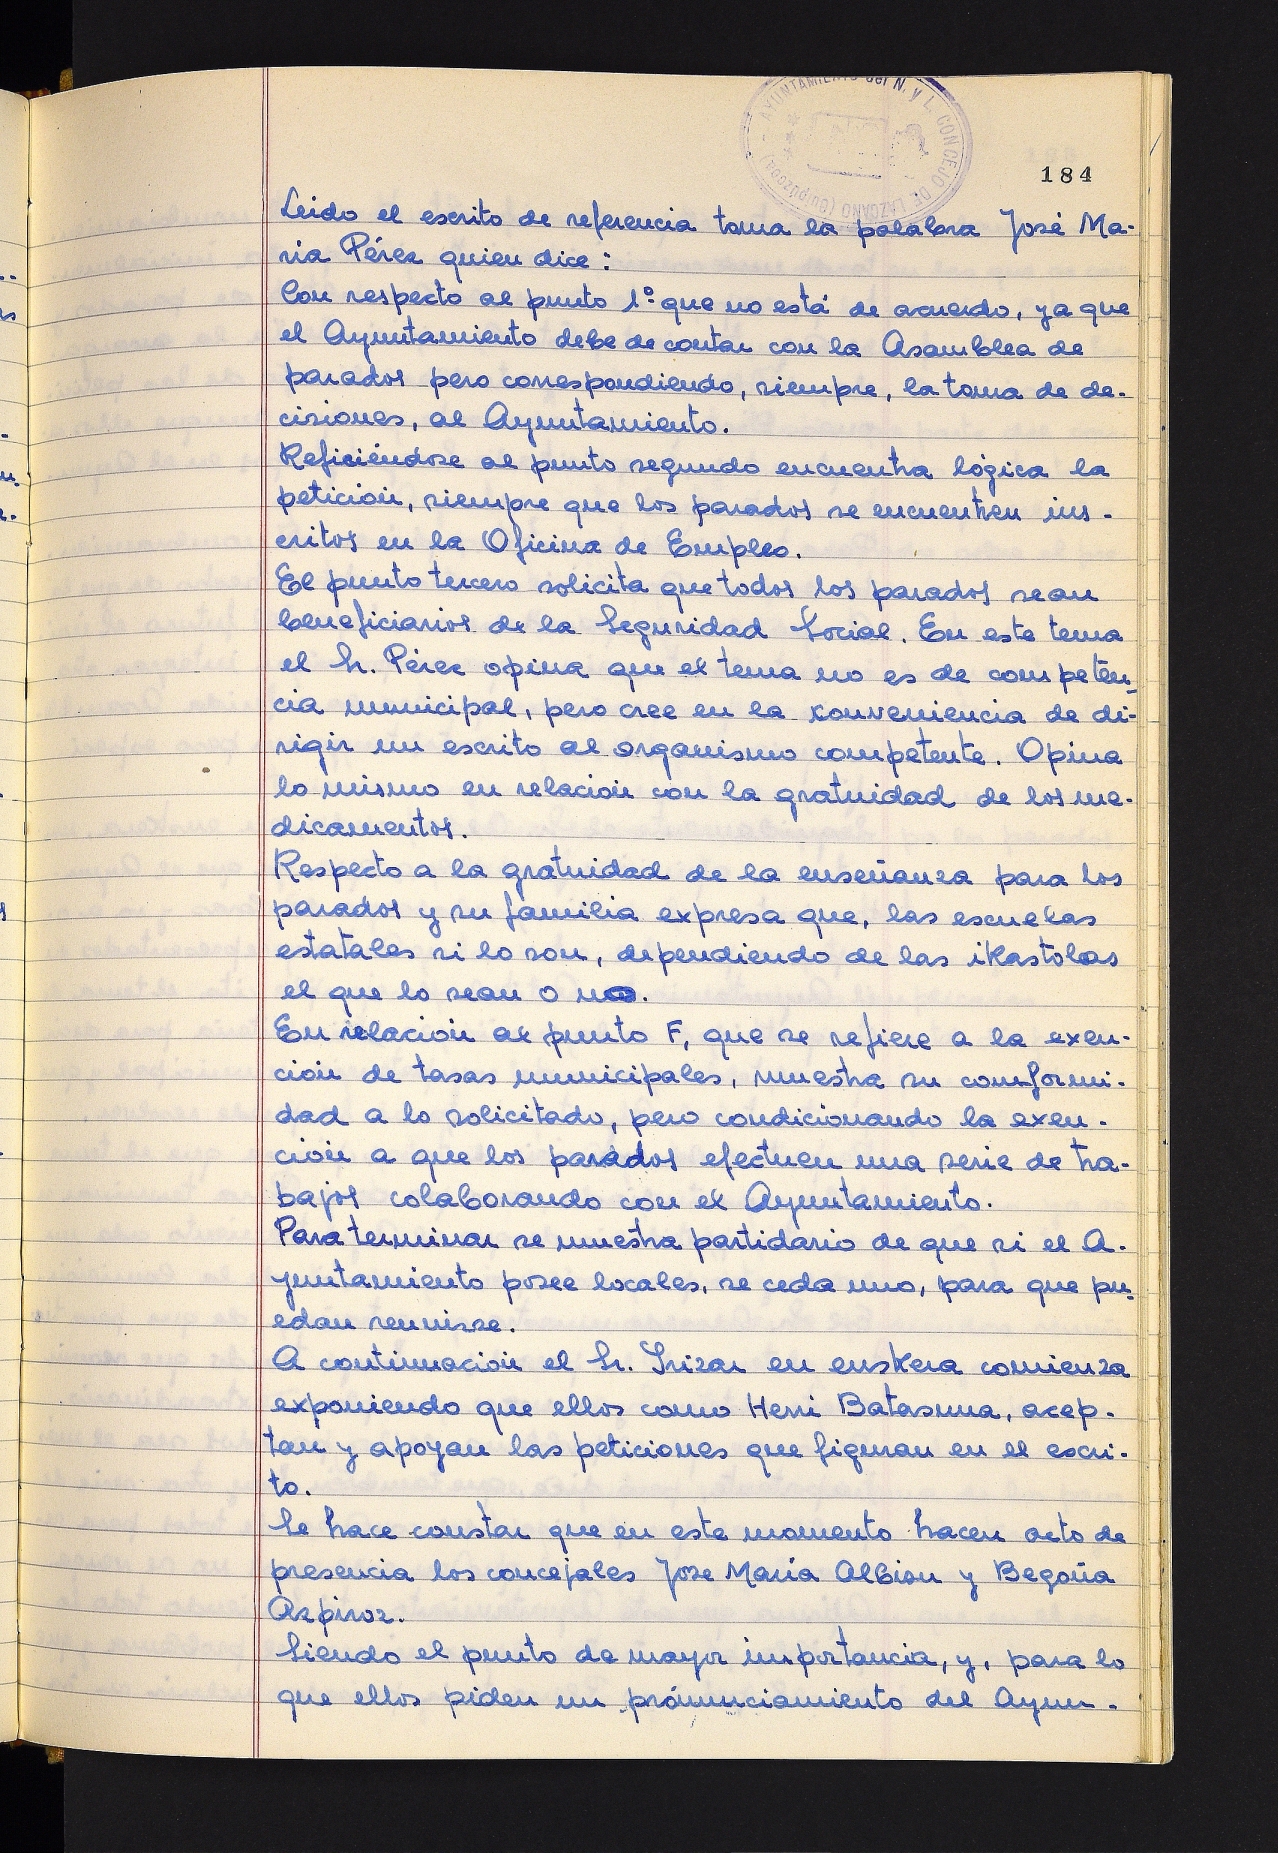 AYUNTAMIENTO del N. y L. CONCEJO DE LAZCANO (Guipúzcoa)
184
Leido el escrito de referencia toma la palabra José Ma-
ria Pérez quien dice:
Con respecto al punto 1º que no está de acuerdo, ya que
el Ayuntamiento debe de contar con la Asamblea de
parados pero correspondiendo, siempre, la toma de de-
cisiones, al Ayuntamiento.
Refiriéndose al punto segundo encuentra lógica la
petición, siempre que los parados se encuentren ins-
critos en la Oficina de Empleo.
El punto tercero solicita que todos los parados sean
beneficiarios de la Seguridad Social. En este tema
el Sr. Pérez opina que el tema no es de competen-
cia municipal, pero cree en la conveniencia de di-
rigir un escrito al organismo competente. Opina
lo mismo en relación con la gratuidad de los me-
dicamentos.
Respecto a la gratuidad de la enseñanza para los
parados y su familia expresa que, las escuelas
estatales si lo son, dependiendo de las ikastolas
el que lo sean o no.
En relación al punto F, que se refiere a la exen-
ción de tasas municipales, muestra su conformi-
dad a lo solicitado, pero condicionando la exen-
ción a que los parados efectuen una serie de tra-
bajos colaborando con el Ayuntamiento.
Para terminar se muestra partidario de que si el A-
yuntamiento posee locales, se ceda uno, para que pu-
edan reunirse.
A continuación el Sr. Irizar en euskera comienza
exponiendo que ellos como Herri Batasuna, acep-
tan y apoyan las peticiones que figuran en el escri-
to.
Se hace constar que en este momento hacen acto de
presencia los concejales Jose María Albisu y Begoña
Azpiroz.
Siendo el punto de mayor importancia, y, para lo
que ellos piden un pronunciamiento del Ayun-